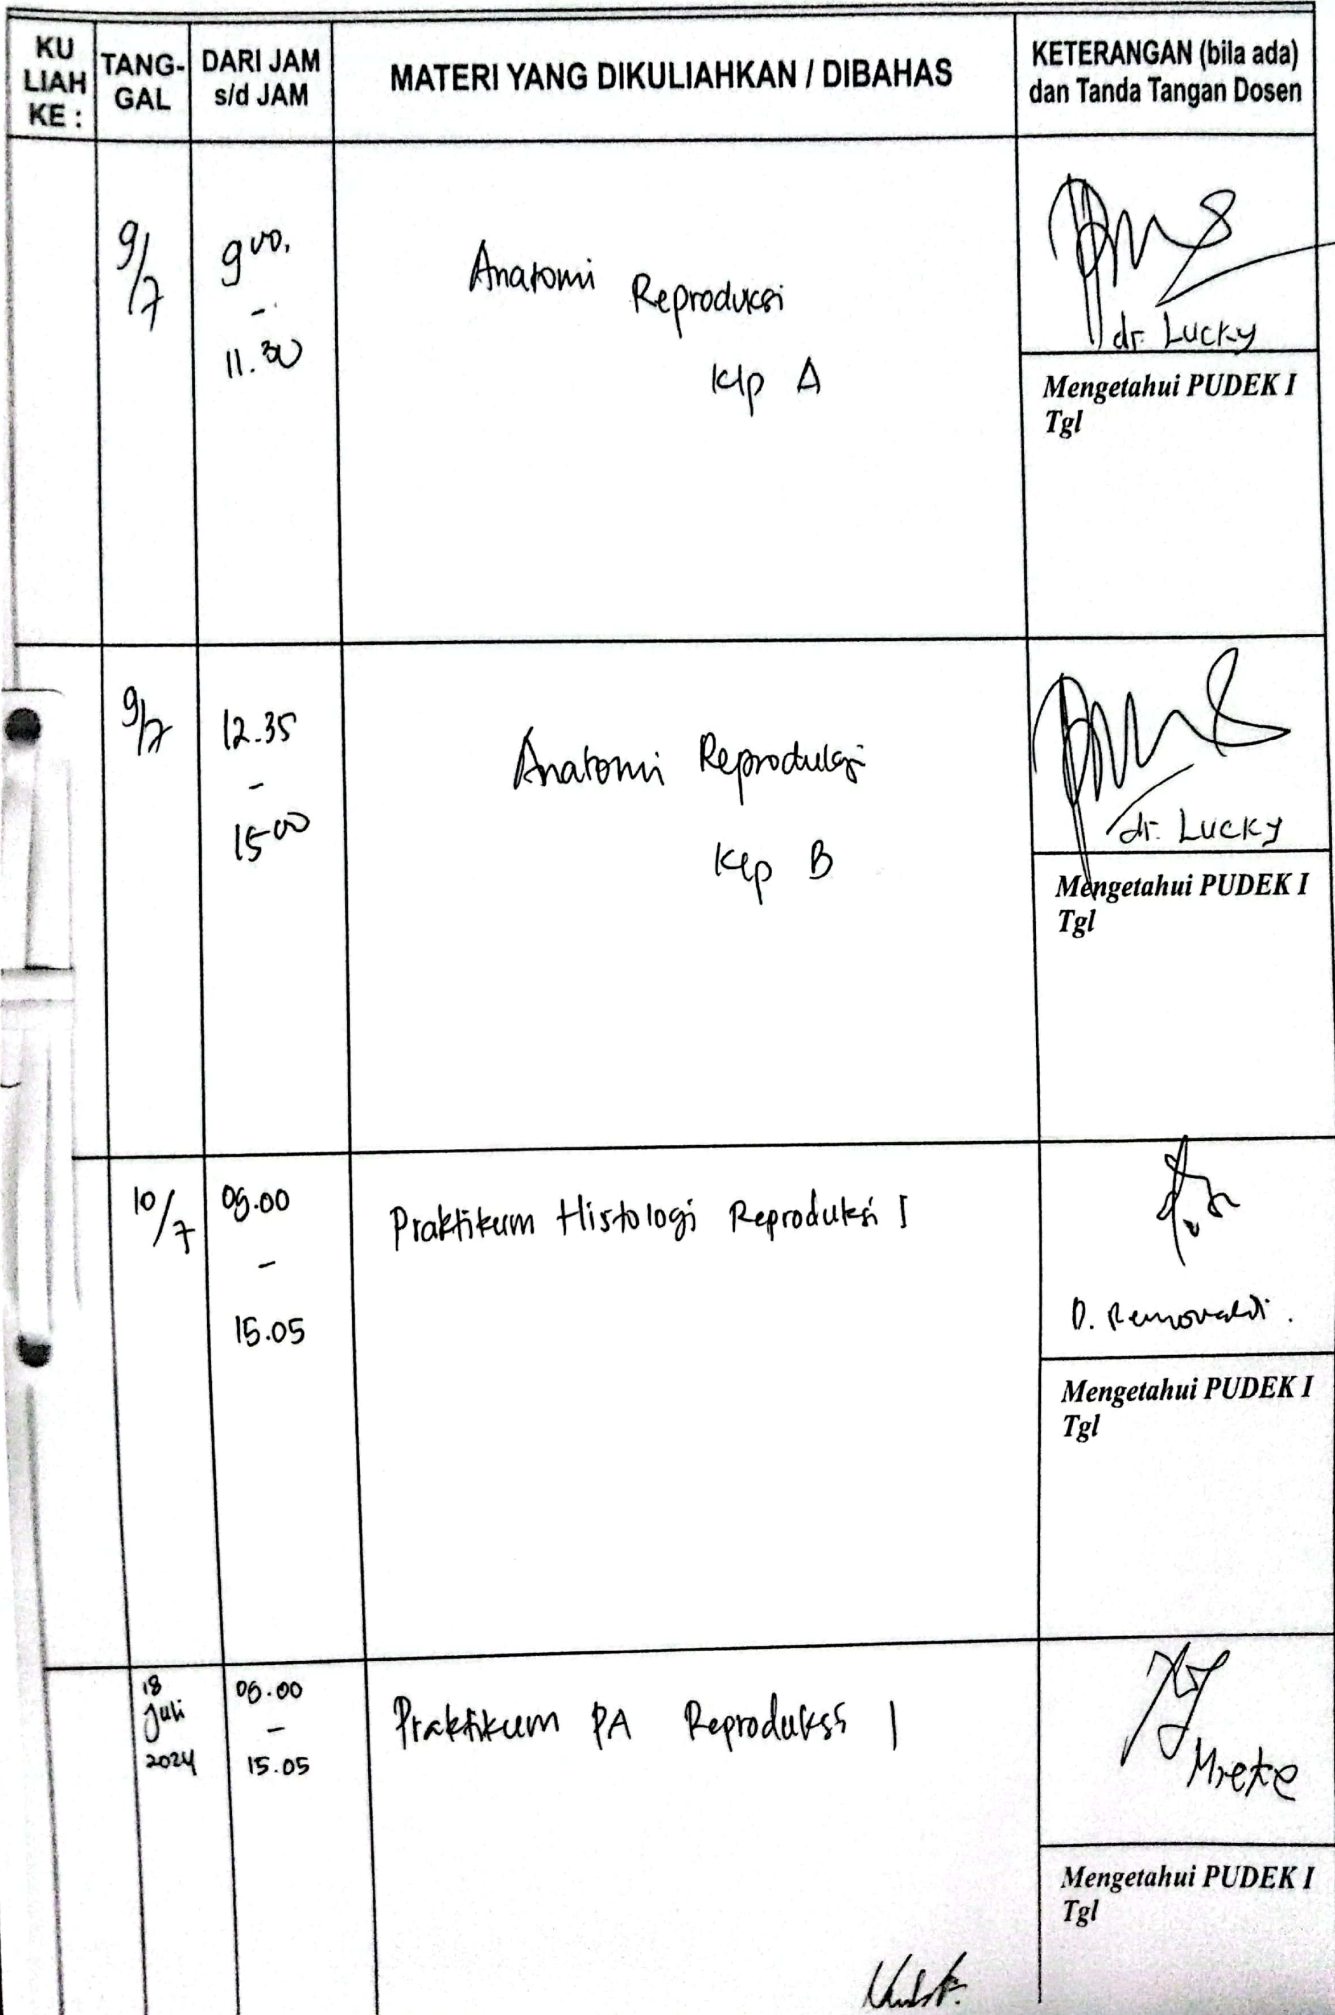 KU
LIAH
KE :
TANG-
GAL
DARI JAM
s/d JAM
MATERI YANG DIKULIAHKAN / DIBAHAS
KETERANGAN (bila ada)
dan Tanda Tangan Dosen
9/7
9 00.
-
11.30
Anatomi Reproduksi
Klp A
dr. Lucky
Mengetahui PUDEK I
Tgl
9/7
12.35
-
15 00
Anatomi Reproduksi
Klp B
dr. Lucky
Mengetahui PUDEK I
Tgl
10/7
-
15.05
Praktikum Histologi Reproduksi I
Mengetahui PUDEK I
Tgl
18
Juli
2024
-
15.05
Praktikum PA Reproduksi I
Mieke
Mengetahui PUDEK I
Tgl